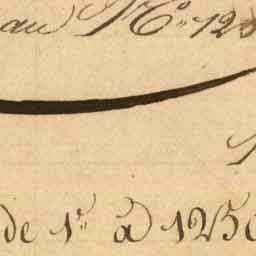 au N.o 125
de 1.er à 1250